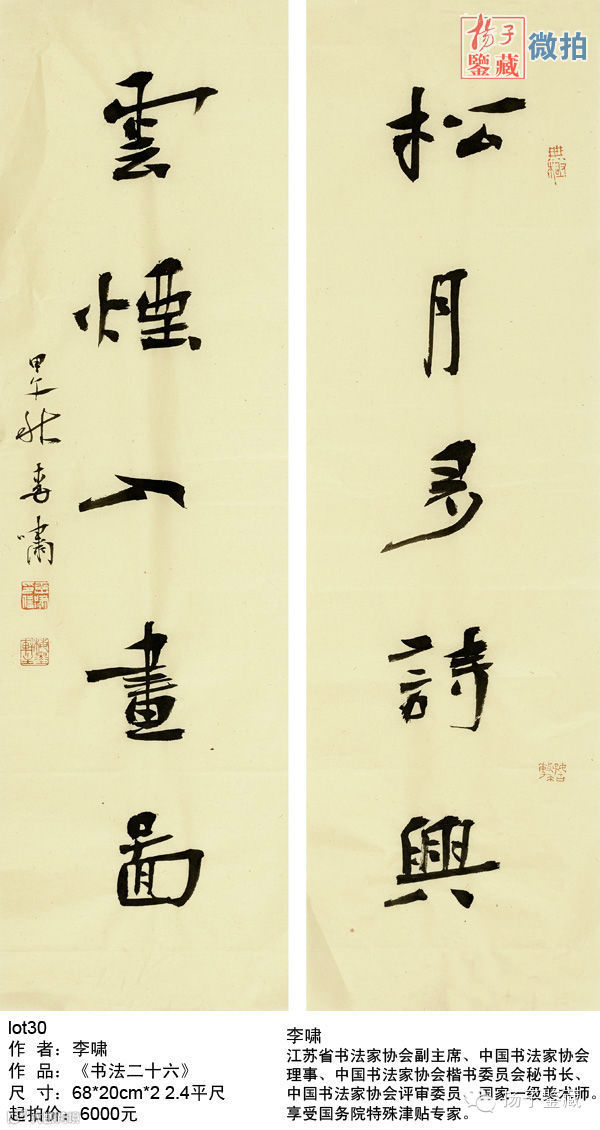 扬子
鑒藏
微拍
松月多詩興
雲煙入畫圖
甲午秋李嘯
lot30
作 者：李啸
作 品：《书法二十六》
尺 寸：68*20cm*2 2.4平尺
起拍价：6000元
李啸
江苏省书法家协会副主席、中国书法家协会
理事、中国书法家协会楷书委员会秘书长、
中国书法家协会评审委员、国家一级美术师。
享受国务院特殊津贴专家。
扬子鉴藏